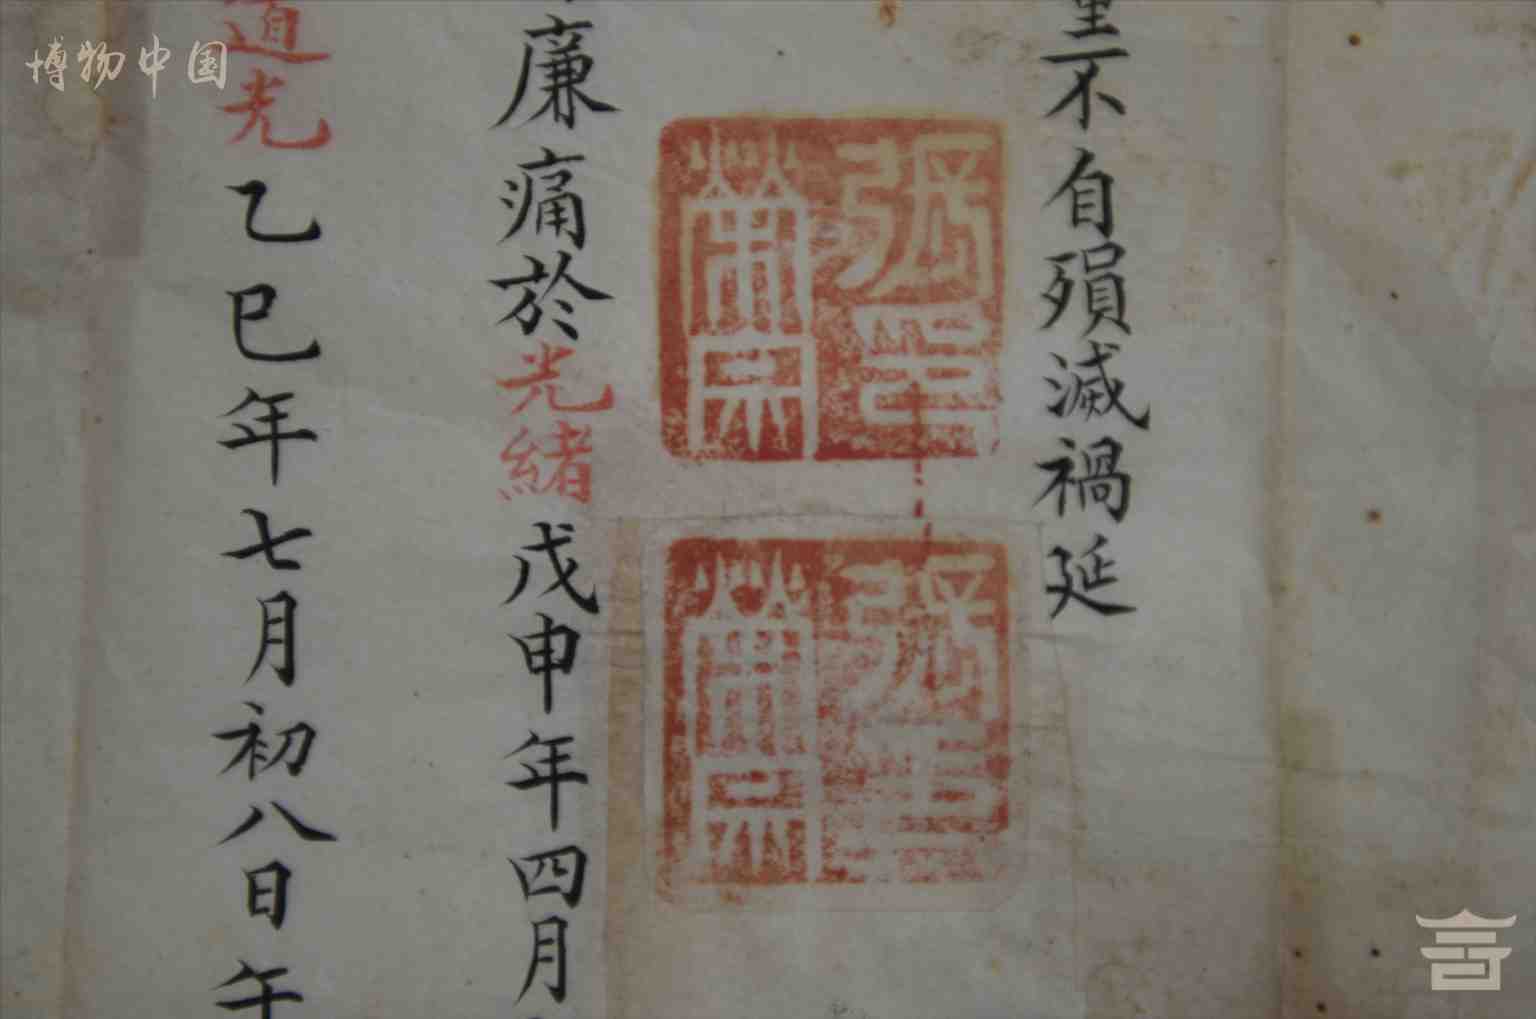 不自殞滅禍延
廉痛於光緒戊申年四月
道光乙巳年七月初八日午
博物中国